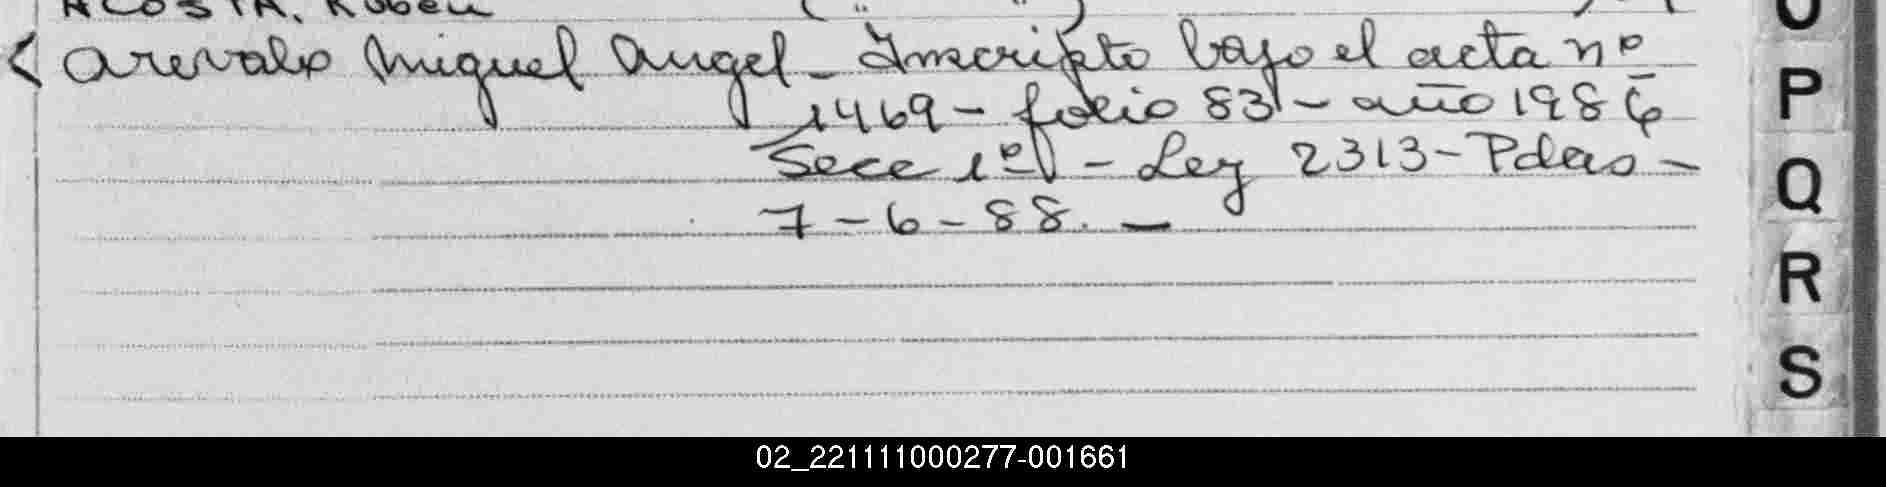 ACOSTA, Ruben ( " " )
< Arevalo Miguel Angel - Inscripto bajo el acta nº
1469 - folio 83 - año 1986
Secc 1ª - Ley 2313 - Pdas -
7-6-88. -
O
P
Q
R
S
02_221111000277-001661